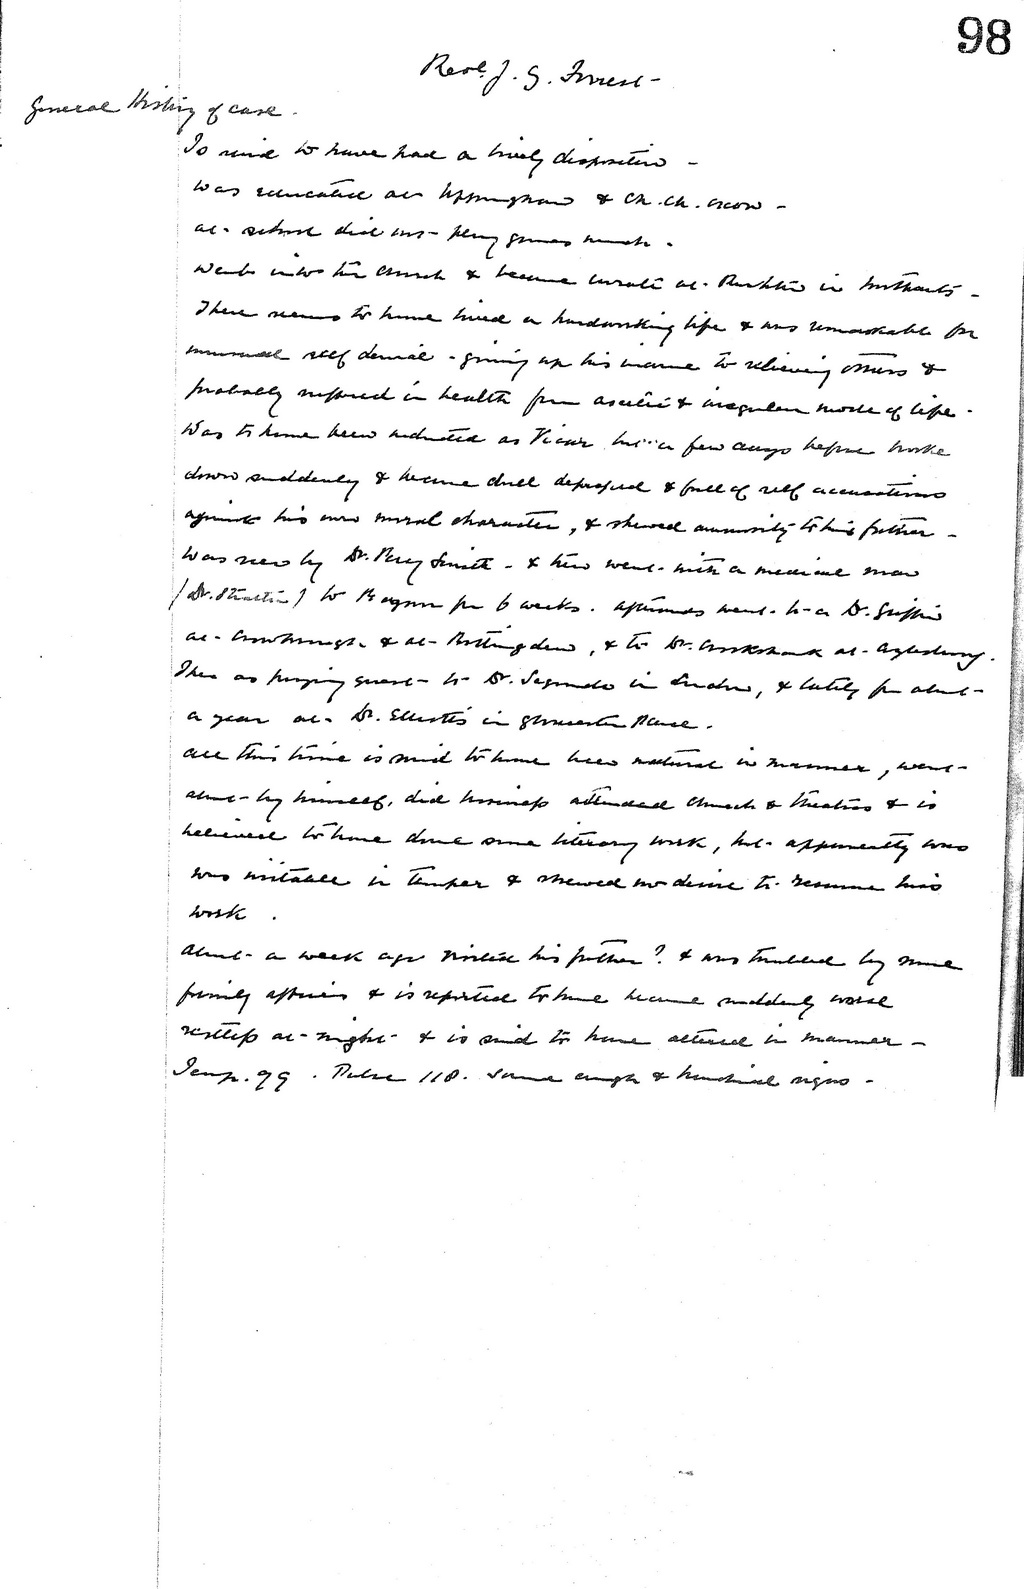 98
Revd. J. G. Forrest -
General History of case -
Is said to have had a lively disposition -
was educated at Uppingham & Ch. Ch. Oxon -
at school did not play games much -
went into the Church & became curate at Rushton in Northants -
There seems to have lived a hardworking life & was remarkable for
unusual self denial - giving up his income to relieving others &
probably suffered in health from ascetic & irregular mode of life -
Was to have been inducted as Vicar but a few days before broke
down suddenly & became dull depressed & full of self accusations
against his own moral character, & shewed animosity to his father -
Was seen by Dr. Percy Smith - & then went with a medical man
(Dr. ) to for 6 weeks. afterwards went to a Dr. Griffin
at Crowborough & at Rottingdean, & to Dr. Crookshank at Aylesbury.
Then as paying guest to Dr. Segundo in London, & lately for about
a year at Dr. Elliott's in Gloucester Place.
all this time is said to have been natural in manner, went
about by himself, did business attended church & theatres & is
believed to have done some literary work, but apparently was
was irritable in temper & shewed no desire to resume his
work.
About a week ago visited his father? & was troubled by some
family affairs & is reported to have become suddenly worse
restless at night & is said to have altered in manner -
Temp. 99. Pulse 118. Some cough & bronchial signs -